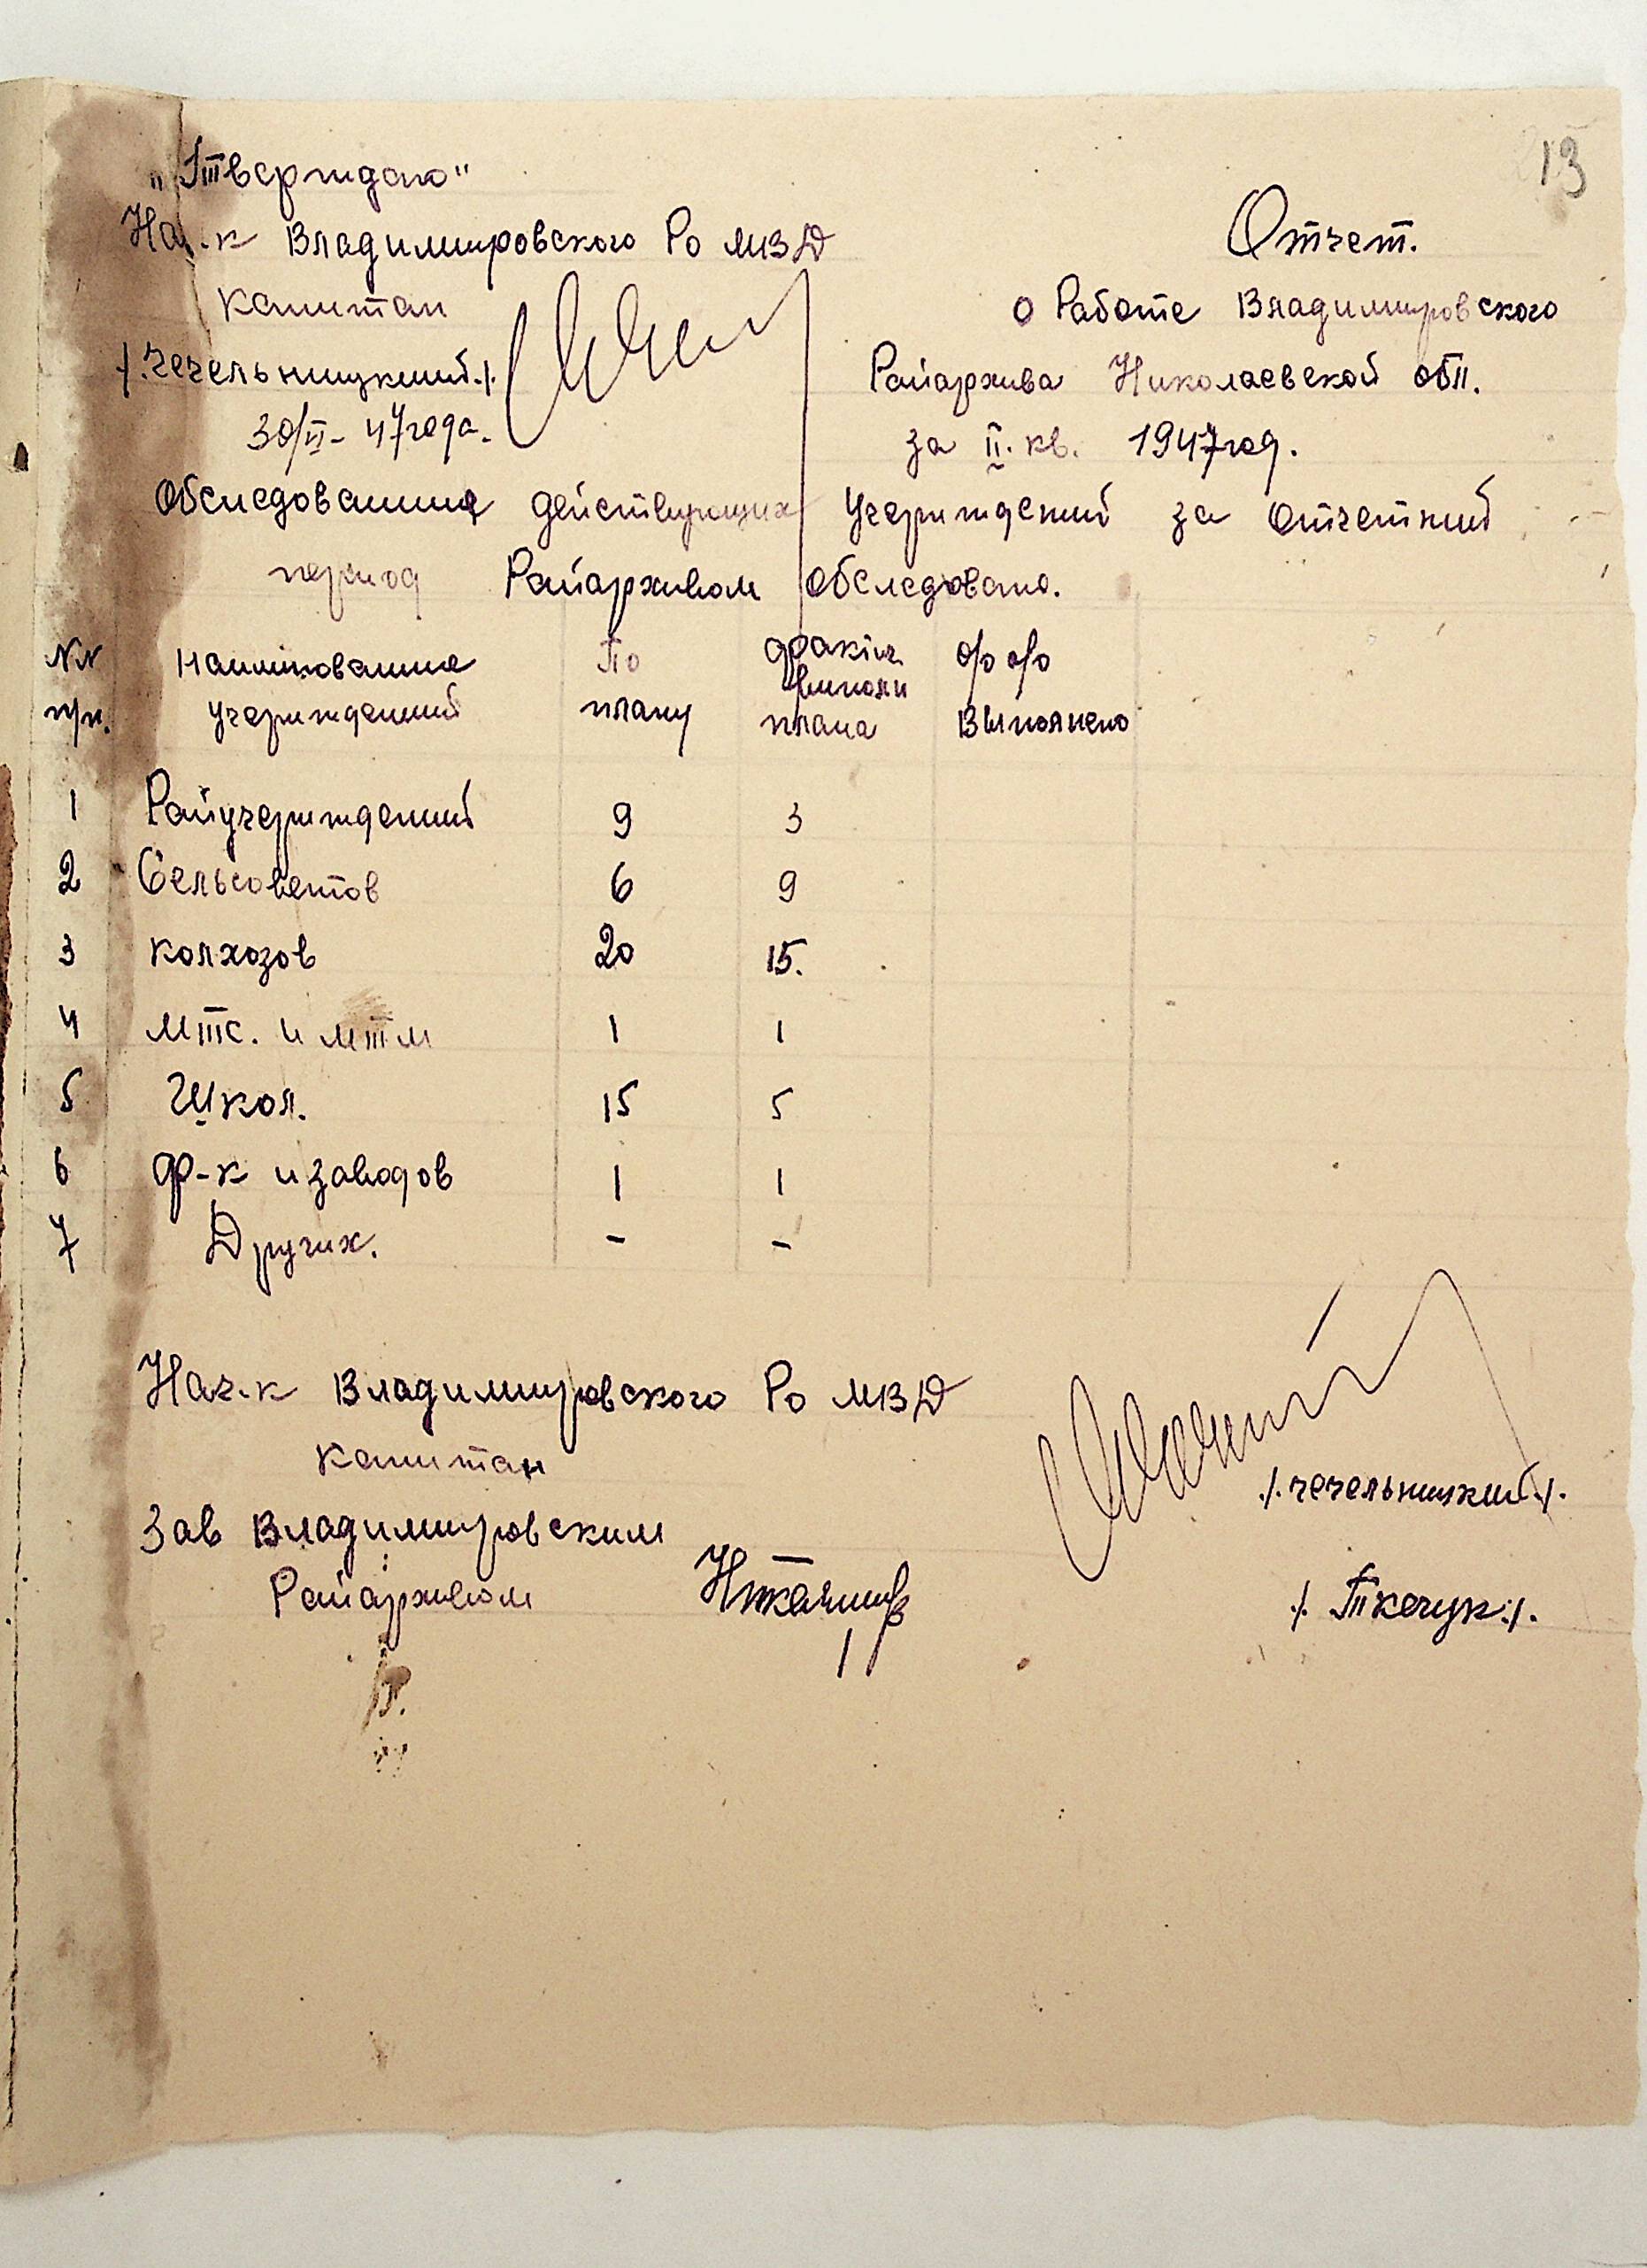 13
„Тверждаю"
Нач-к Владимировского Ро МВД
капитан
/.Чечельницкий./.
30/VI-47года.
Отчет.
о Работе Владимировского
Райархива Николаевской обл.
за II. кв. 1947год.
Обследование действующих Учереждений за отчетний
период Райархивом обследовано.
NN Наиминование По фактич. % %
п/п. учереждений плану выполн плана Выполнено
1 Райучереждений 9 3
2 Сельсоветов 6 9
3 колхозов 20 15.
4 мтс. и мтм 1 1
5 Школ. 15 5
6 ф-к и заводов 1 1
7 Других. - -
Нач-к Владимировского Ро МВД
капитан
/.Чечельницкий./.
Зав Владимировским
Райархивом
/.Ткачук./.